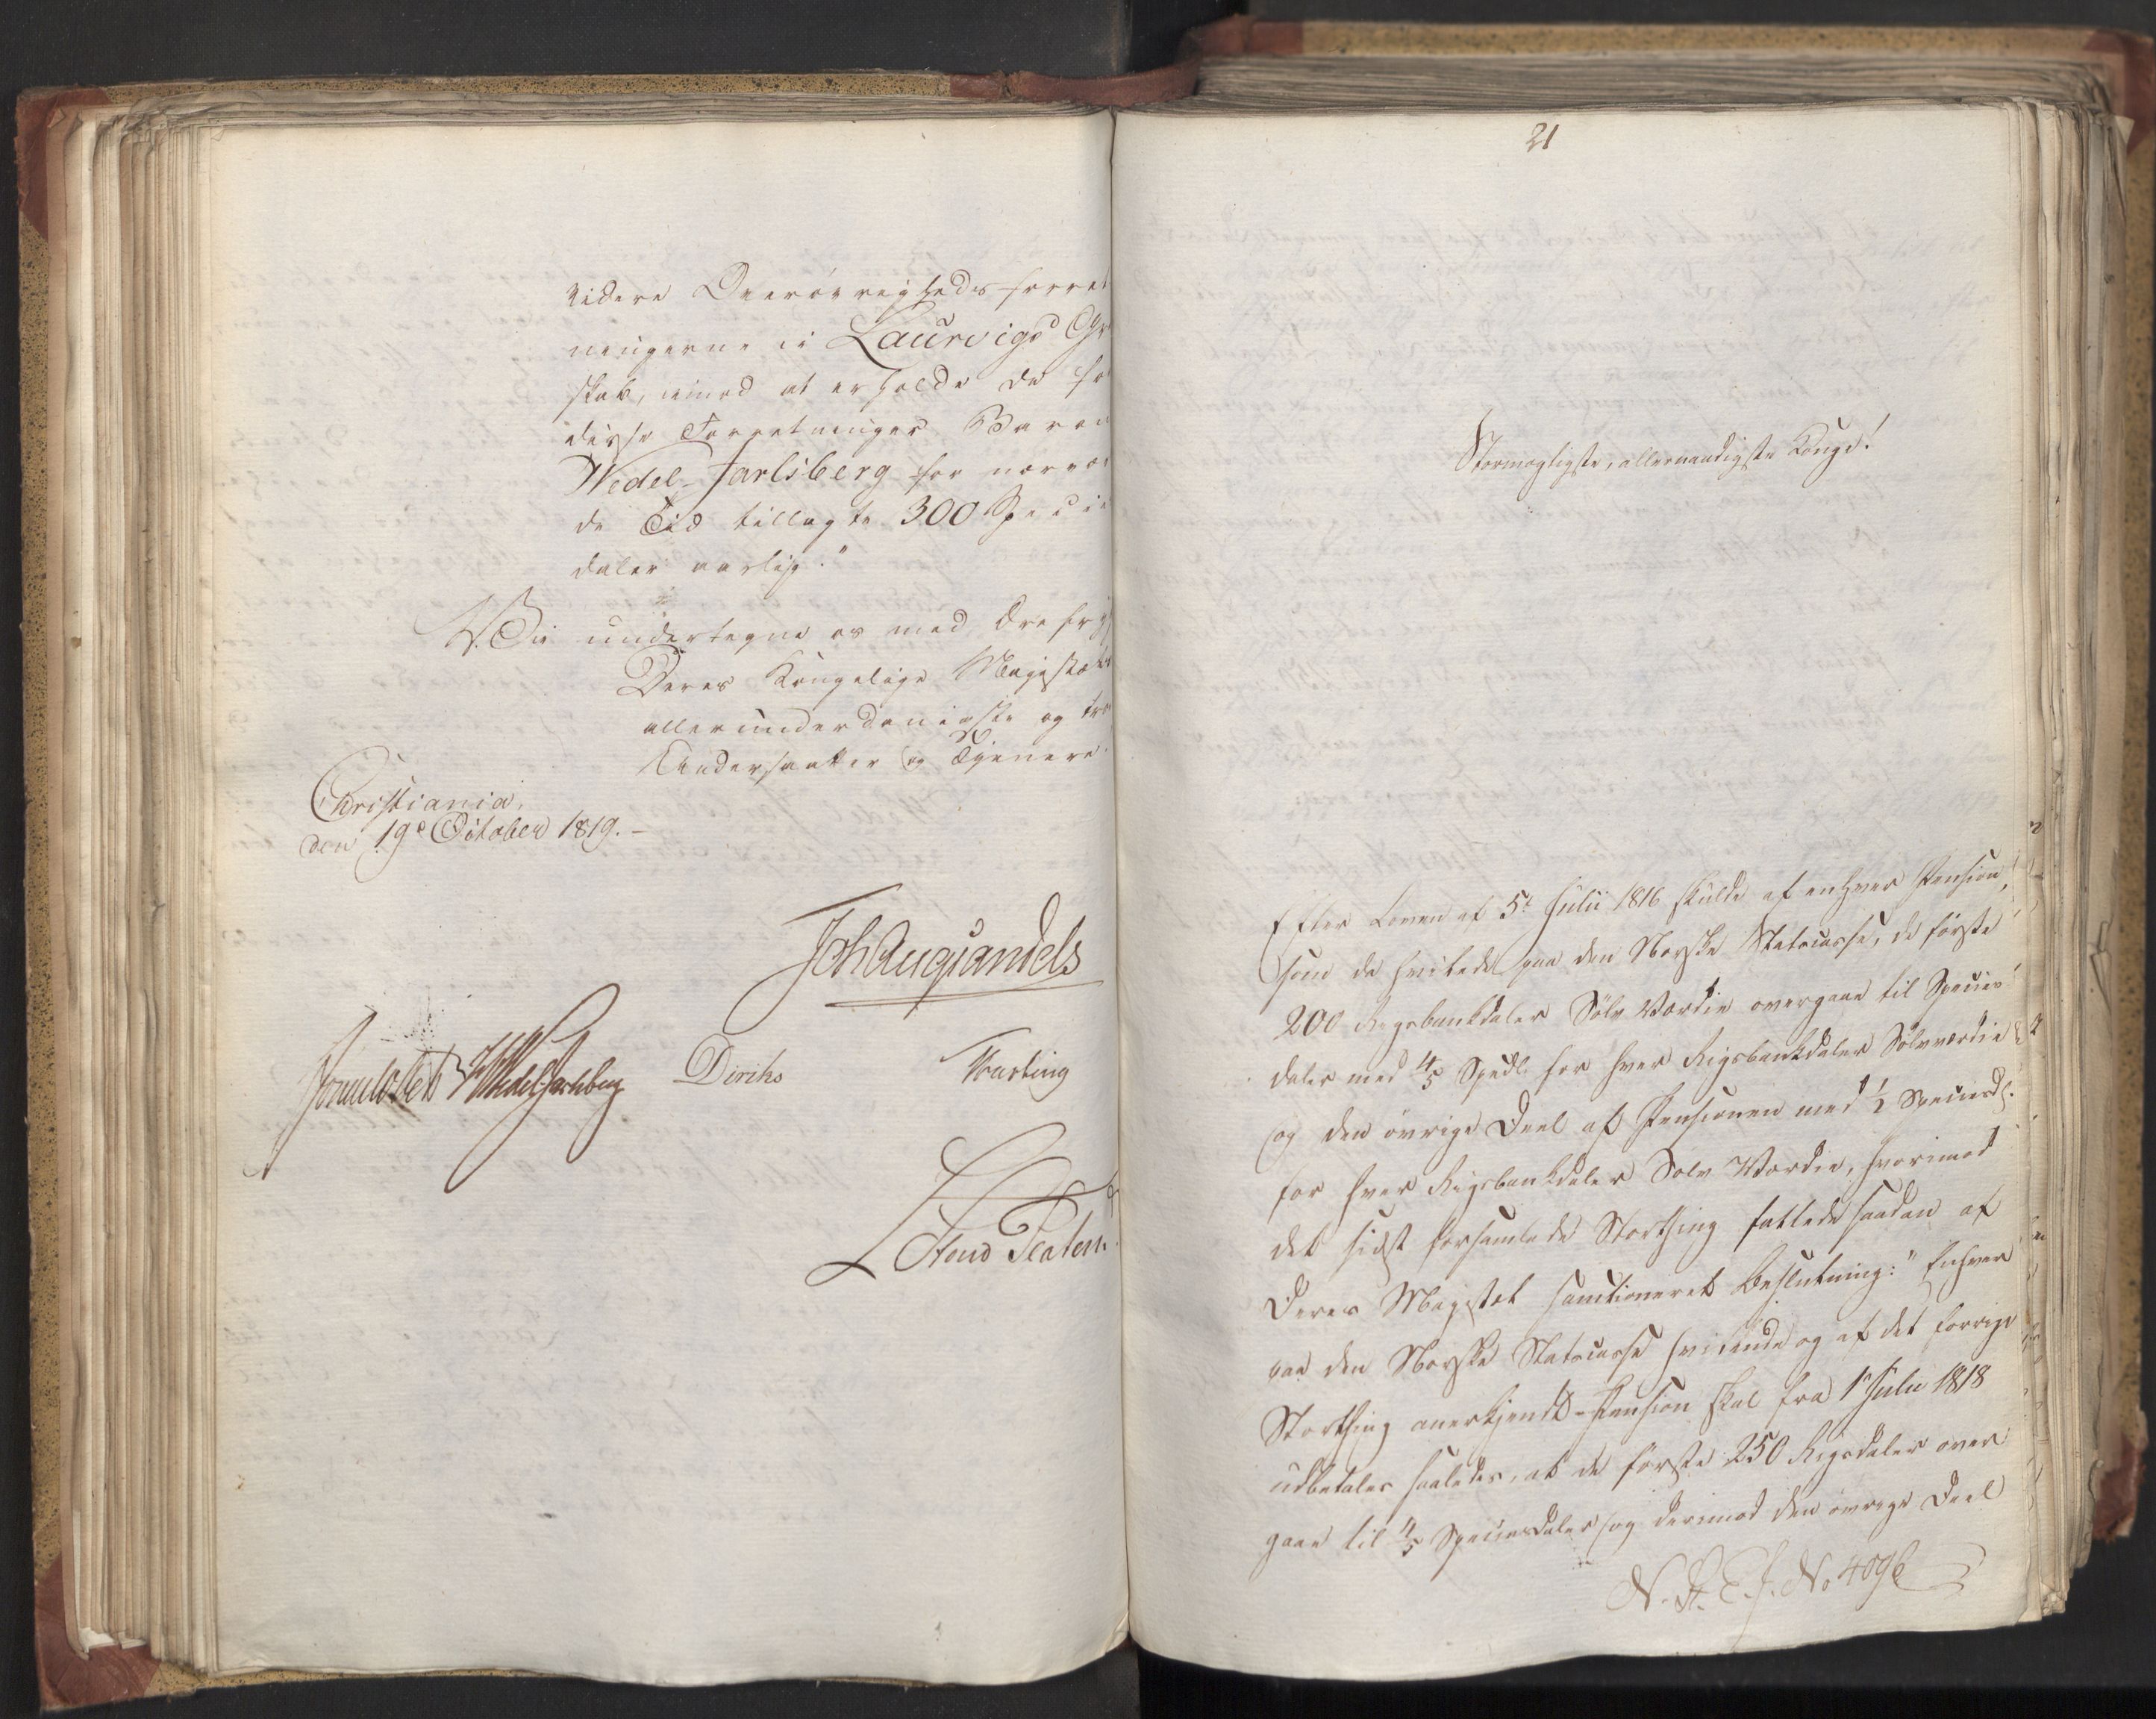 videre Overøvrigheds-forret
ningerne i Laurvigs Gr
skab, imod at erholde de for
disse Forretninger Baron
Wedel-Jarlsberg for nærvæ
de Tid tillagte 300 Specie
daler aarlig."
Vi undertegne os med Ærefrygt
Deres Kongelige Majestæts
allerunderdanigste og tro
Undersaatter og Tjenere.
Christiania,
den 19e October 1819. –
Joh Aug Sandels
Sommerfeldt HWedel Jarlsberg Diriks Krefting
21
Stormægtigste, allernaadigste Konge!
Efter Loven af 5te Julii 1816 skulde af enhver Pension,
som da hvilede paa den Norske Statscasse, de første
200 Rigsbankdaler Sølv Værdie overgaae til Species
daler med 4/5 Spdl. for hver Rigsbankdaler Sølvværdie
og den øvrige Deel af Pensionen med 1/2 Speciesdl.
for hver Rigsbankdaler Sølv Værdie, hvorimod
det sidst forsamlede Storthing fattede saadan af
Deres Majestæt sanctioneret Beslutning: "Enhver
paa den Norske Statscasse hvilende og af det forrige
Storthing anerkjendt Pension skal fra 1te Julii 1818
udbetales saaledes, at de første 250 Rigsdaler over
gaae til 4/5 Speciesdaler og derimod den øvrige Deel
N. St. E. J. No 4096